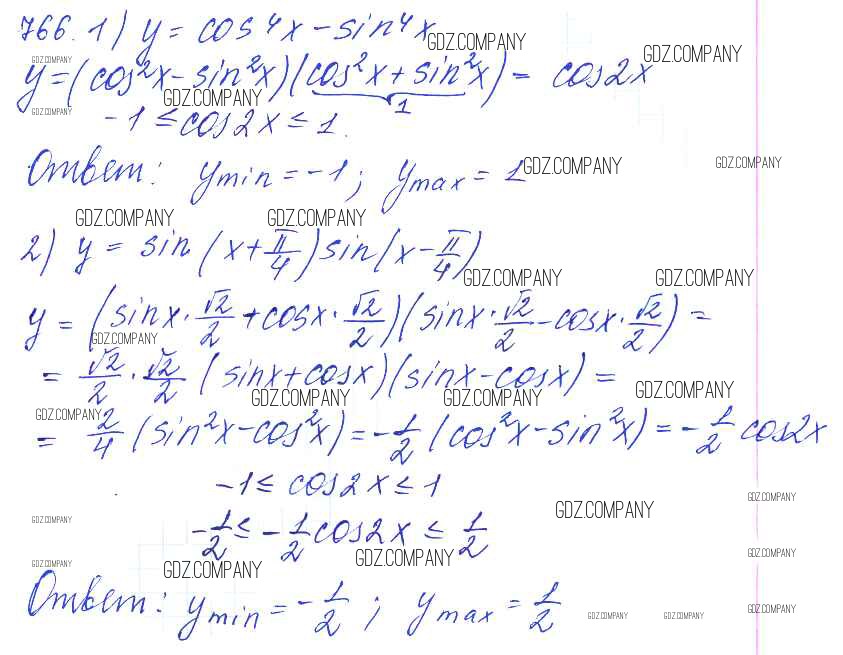 766. 1) y = cos⁴x − sin⁴x
GDZ.COMPANY GDZ.COMPANY GDZ.COMPANY
y = (cos²x − sin²x)(cos²x + sin²x) = cos2x
GDZ.COMPANY
1
GDZ.COMPANY
−1 ≤ cos2x ≤ 1.
Ответ: y min = −1; y max = 1
GDZ.COMPANY GDZ.COMPANY
GDZ.COMPANY GDZ.COMPANY
2) y = sin(x + π/4) sin(x − π/4)
GDZ.COMPANY GDZ.COMPANY
y = (sinx · √2/2 + cosx · √2/2)(sinx · √2/2 − cosx · √2/2) =
GDZ.COMPANY
= √2/2 · √2/2 (sinx + cosx)(sinx − cosx) =
GDZ.COMPANY GDZ.COMPANY GDZ.COMPANY
GDZ.COMPANY
= 2/4 (sin²x − cos²x) = −1/2 (cos²x − sin²x) = −1/2 cos2x
−1 ≤ cos2x ≤ 1
GDZ.COMPANY
GDZ.COMPANY
GDZ.COMPANY
−1/2 ≤ −1/2 cos2x ≤ 1/2
GDZ.COMPANY GDZ.COMPANY GDZ.COMPANY GDZ.COMPANY
Ответ: y min = −1/2; y max = 1/2
GDZ.COMPANY GDZ.COMPANY GDZ.COMPANY